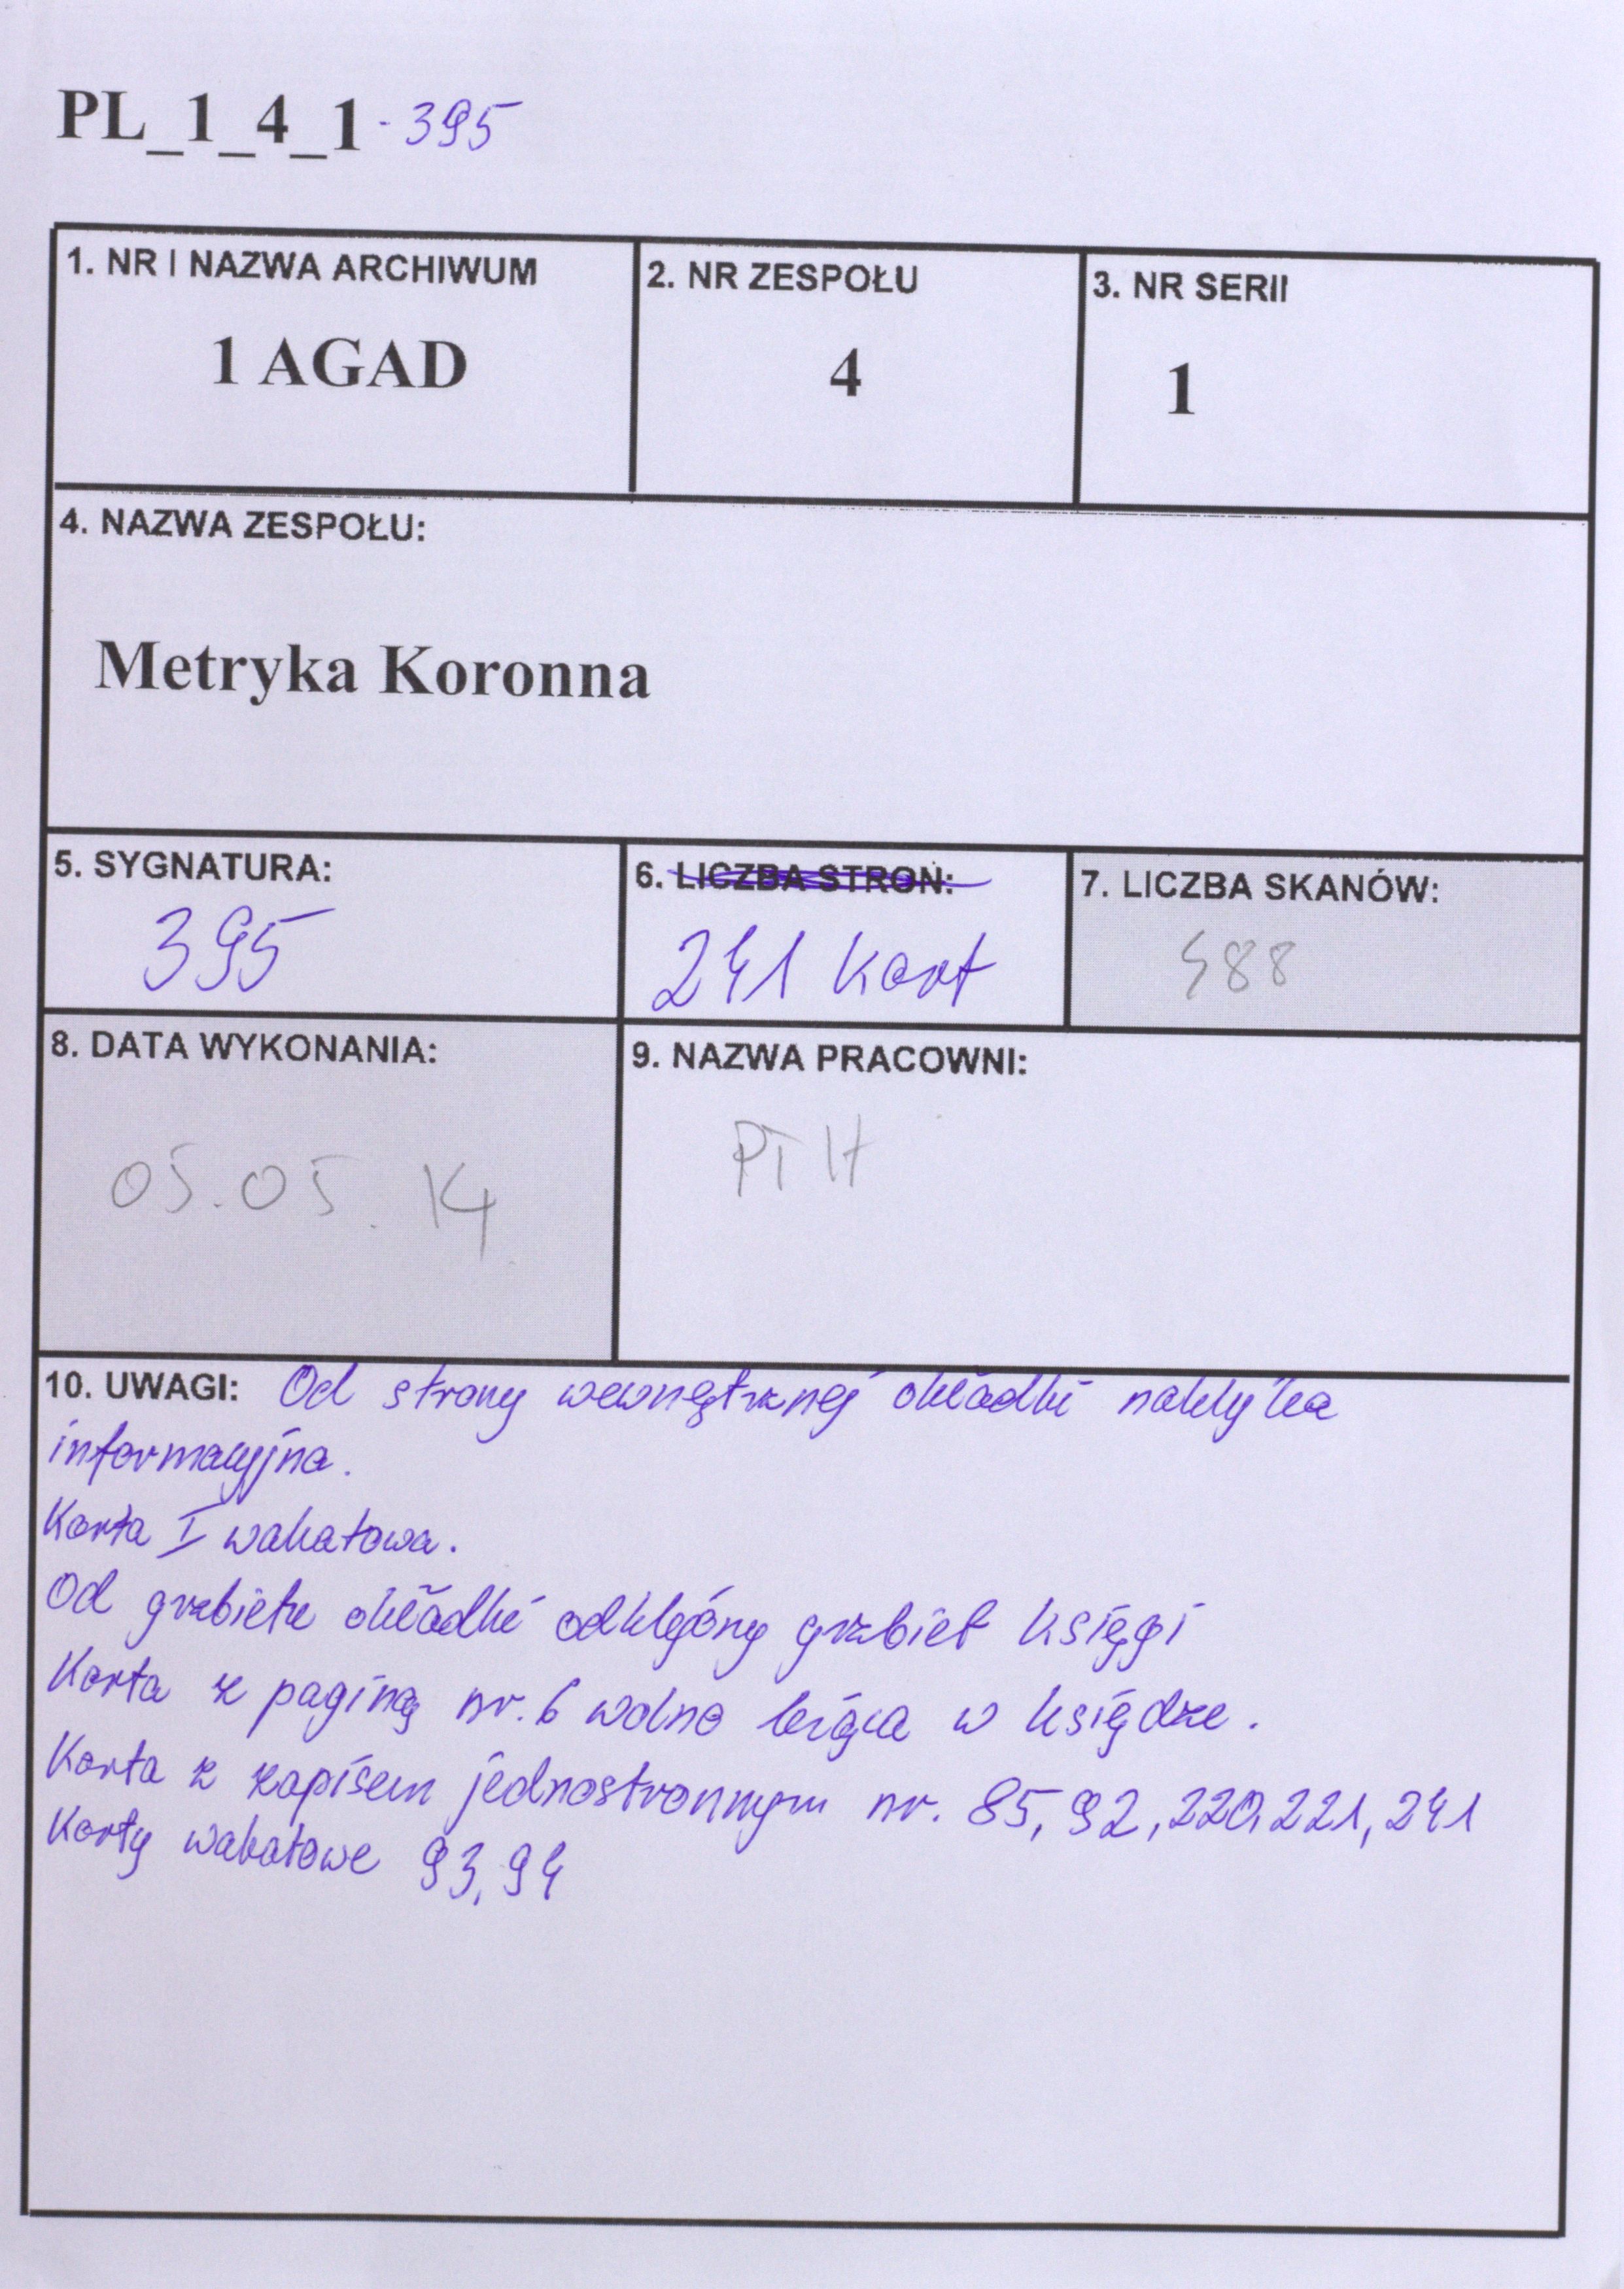 PL_1_4_1-395
1. NR I NAZWA ARCHIWUM
1 AGAD
2. NR ZESPOŁU
4
3. NR SERII
1
4. NAZWA ZESPOŁU:
Metryka Koronna
5. SYGNATURA:
395
6. LICZBA STRON:
241 kart
7. LICZBA SKANÓW:
488
8. DATA WYKONANIA:
05.05.14
9. NAZWA PRACOWNI:
PTH
10. UWAGI: Od strony wewnętrznej okładki naklejka
informacyjna.
Karta I wakatowa.
Od grzbietu okładki odklejony grzbiet księgi
Karta z paginą nr. 6 wolno leżąca w księdze.
Karta z zapisem jednostronnym nr. 85, 92, 220, 221, 241
Karty wakatowe 93, 94